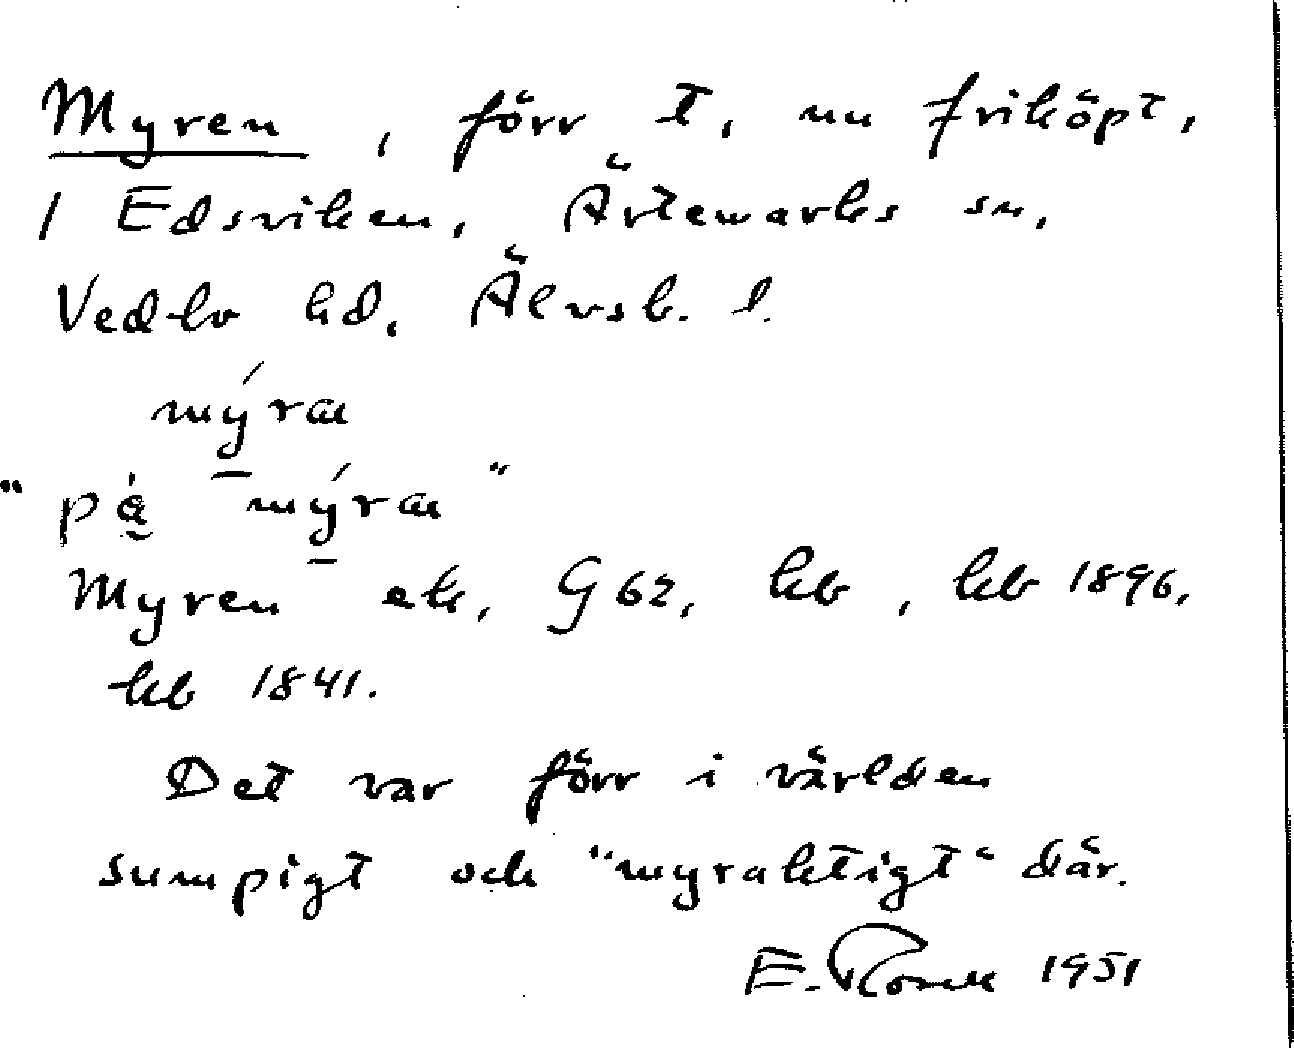 Myren, förr t, nu friköpt,
1 Edsviken, Ärtemarks sn,
Vedbo hd, Älvsb. l.
mýræ
"på mýræ"
Myren ek, G62, kb, kb 1896,
kb 1841.
Det var förr i världen
sumpigt och "myraktigt" där.
E. Rosell 1951